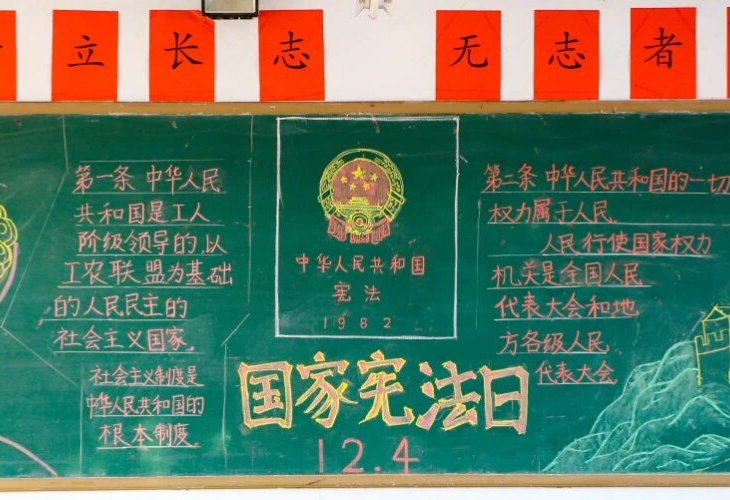 立 长 志 无 志 者
第一条 中华人民
共和国是工人
阶级领导的以
工农联盟为基础
的人民民主的
社会主义国家。
社会主义制度是
中华人民共和国的
根本制度。
中华人民共和国
宪法
1982
国家宪法日
12.4
第二条 中华人民共和国的一切
权力属于人民。
人民行使国家权力
机关是全国人民
代表大会和地
方各级人民
代表大会